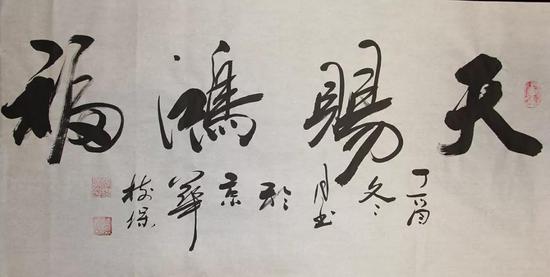 天賜鴻福
丁酉冬月書於京華樹保